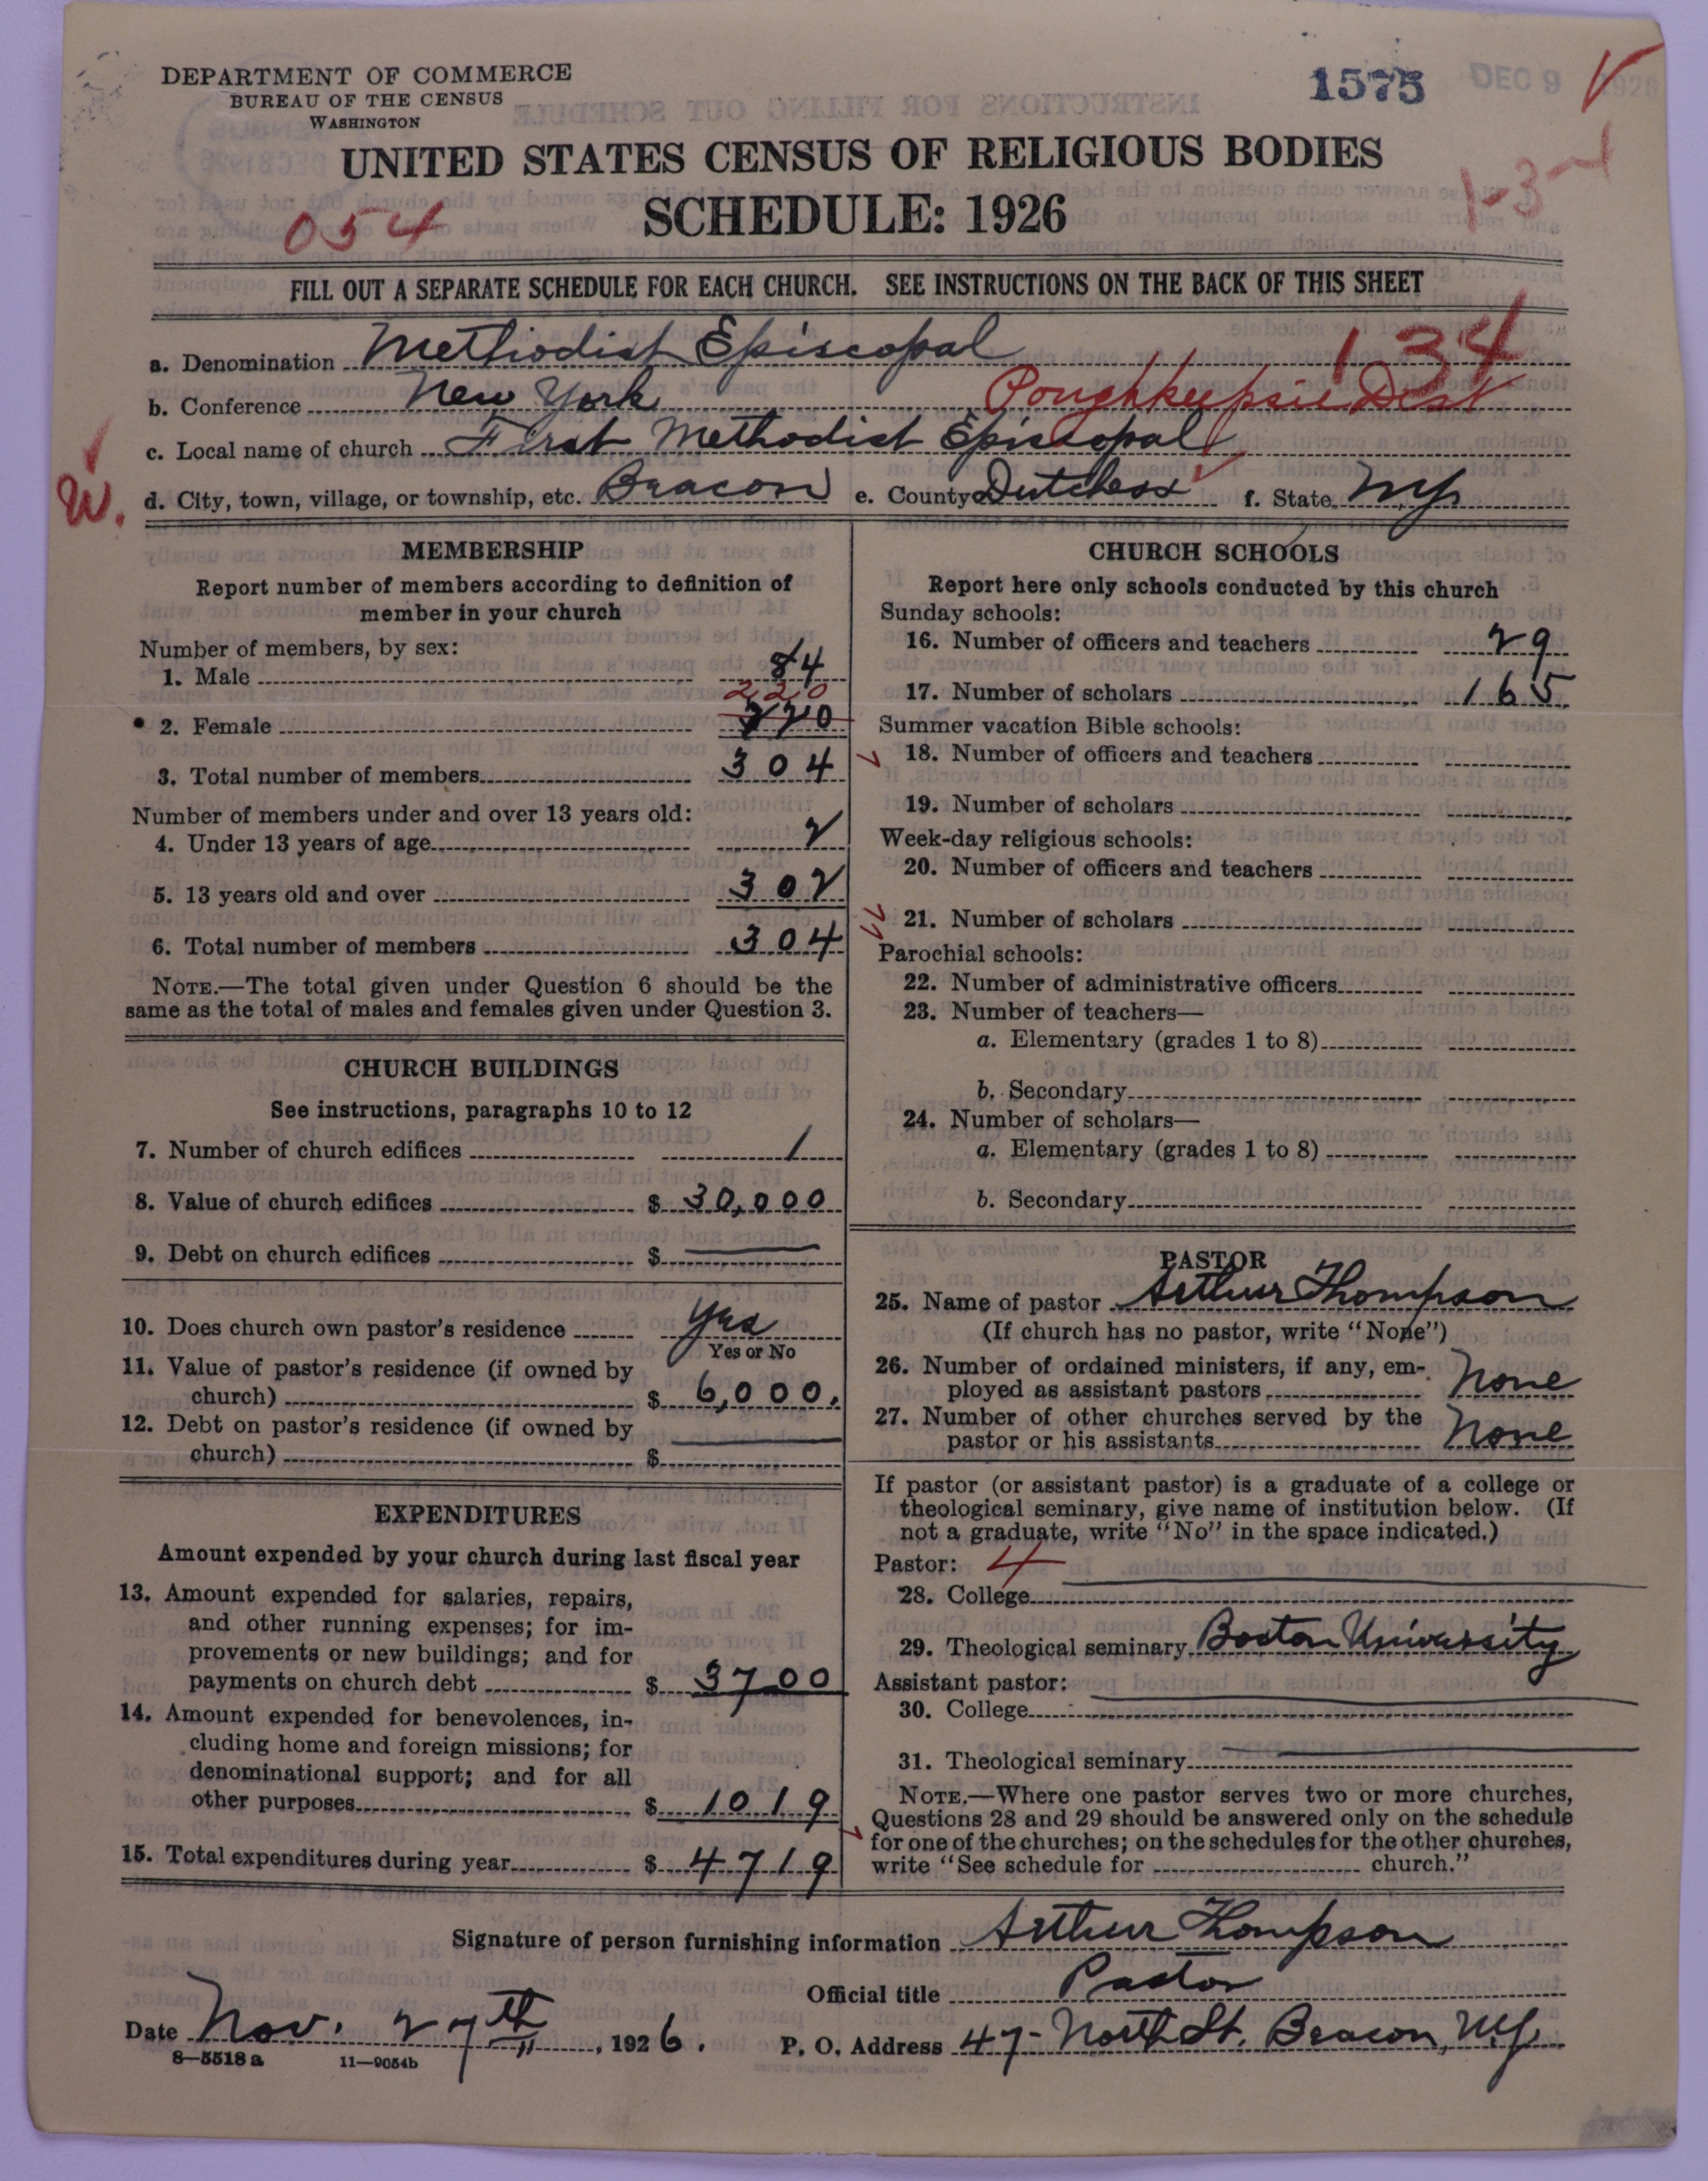 DEPARTMENT OF COMMERCE
BUREAU OF THE CENSUS
WASHINGTON
1575 DEC 9 1926
UNITED STATES CENSUS OF RELIGIOUS BODIES
SCHEDULE: 1926
054
1-3-4
FILL OUT A SEPARATE SCHEDULE FOR EACH CHURCH. SEE INSTRUCTIONS ON THE BACK OF THIS SHEET
134
a. Denomination Methodist Episcopal
b. Conference New York Poughkeepsie Dist
c. Local name of church First Methodist Episcopal
W.
d. City, town, village, or township, etc. Beacon e. County Dutchess f. State N.Y.
MEMBERSHIP
Report number of members according to definition of
member in your church
Number of members, by sex:
1. Male 84
220
2. Female 220
3. Total number of members 304
Number of members under and over 13 years old:
4. Under 13 years of age 2
5. 13 years old and over 302
6. Total number of members 304
NOTE.—The total given under Question 6 should be the
same as the total of males and females given under Question 3.
CHURCH BUILDINGS
See instructions, paragraphs 10 to 12
7. Number of church edifices 1
8. Value of church edifices $ 30,000
9. Debt on church edifices $
10. Does church own pastor's residence Yes
Yes or No
11. Value of pastor's residence (if owned by
church) $ 6,000.
12. Debt on pastor's residence (if owned by
church) $
EXPENDITURES
Amount expended by your church during last fiscal year
13. Amount expended for salaries, repairs,
and other running expenses; for im-
provements or new buildings; and for
payments on church debt $ 3700
14. Amount expended for benevolences, in-
cluding home and foreign missions; for
denominational support; and for all
other purposes $ 1019
15. Total expenditures during year $ 4719
CHURCH SCHOOLS
Report here only schools conducted by this church
Sunday schools:
16. Number of officers and teachers 29
17. Number of scholars 165
Summer vacation Bible schools:
18. Number of officers and teachers
19. Number of scholars
Week-day religious schools:
20. Number of officers and teachers
21. Number of scholars
Parochial schools:
22. Number of administrative officers
23. Number of teachers—
a. Elementary (grades 1 to 8)
b. Secondary
24. Number of scholars—
a. Elementary (grades 1 to 8)
b. Secondary
PASTOR
25. Name of pastor Arthur Thompson
(If church has no pastor, write "None")
26. Number of ordained ministers, if any, em-
ployed as assistant pastors None
27. Number of other churches served by the
pastor or his assistants None
If pastor (or assistant pastor) is a graduate of a college or
theological seminary, give name of institution below. (If
not a graduate, write "No" in the space indicated.)
Pastor: 4
28. College
29. Theological seminary Boston University
Assistant pastor:
30. College
31. Theological seminary
NOTE.—Where one pastor serves two or more churches,
Questions 28 and 29 should be answered only on the schedule
for one of the churches; on the schedules for the other churches,
write "See schedule for church."
Signature of person furnishing information Arthur Thompson
Official title Pastor
Date Nov. 27th, 1926. P. O. Address 47- North St. Beacon, N.Y.
8-5518 a 11-9054b